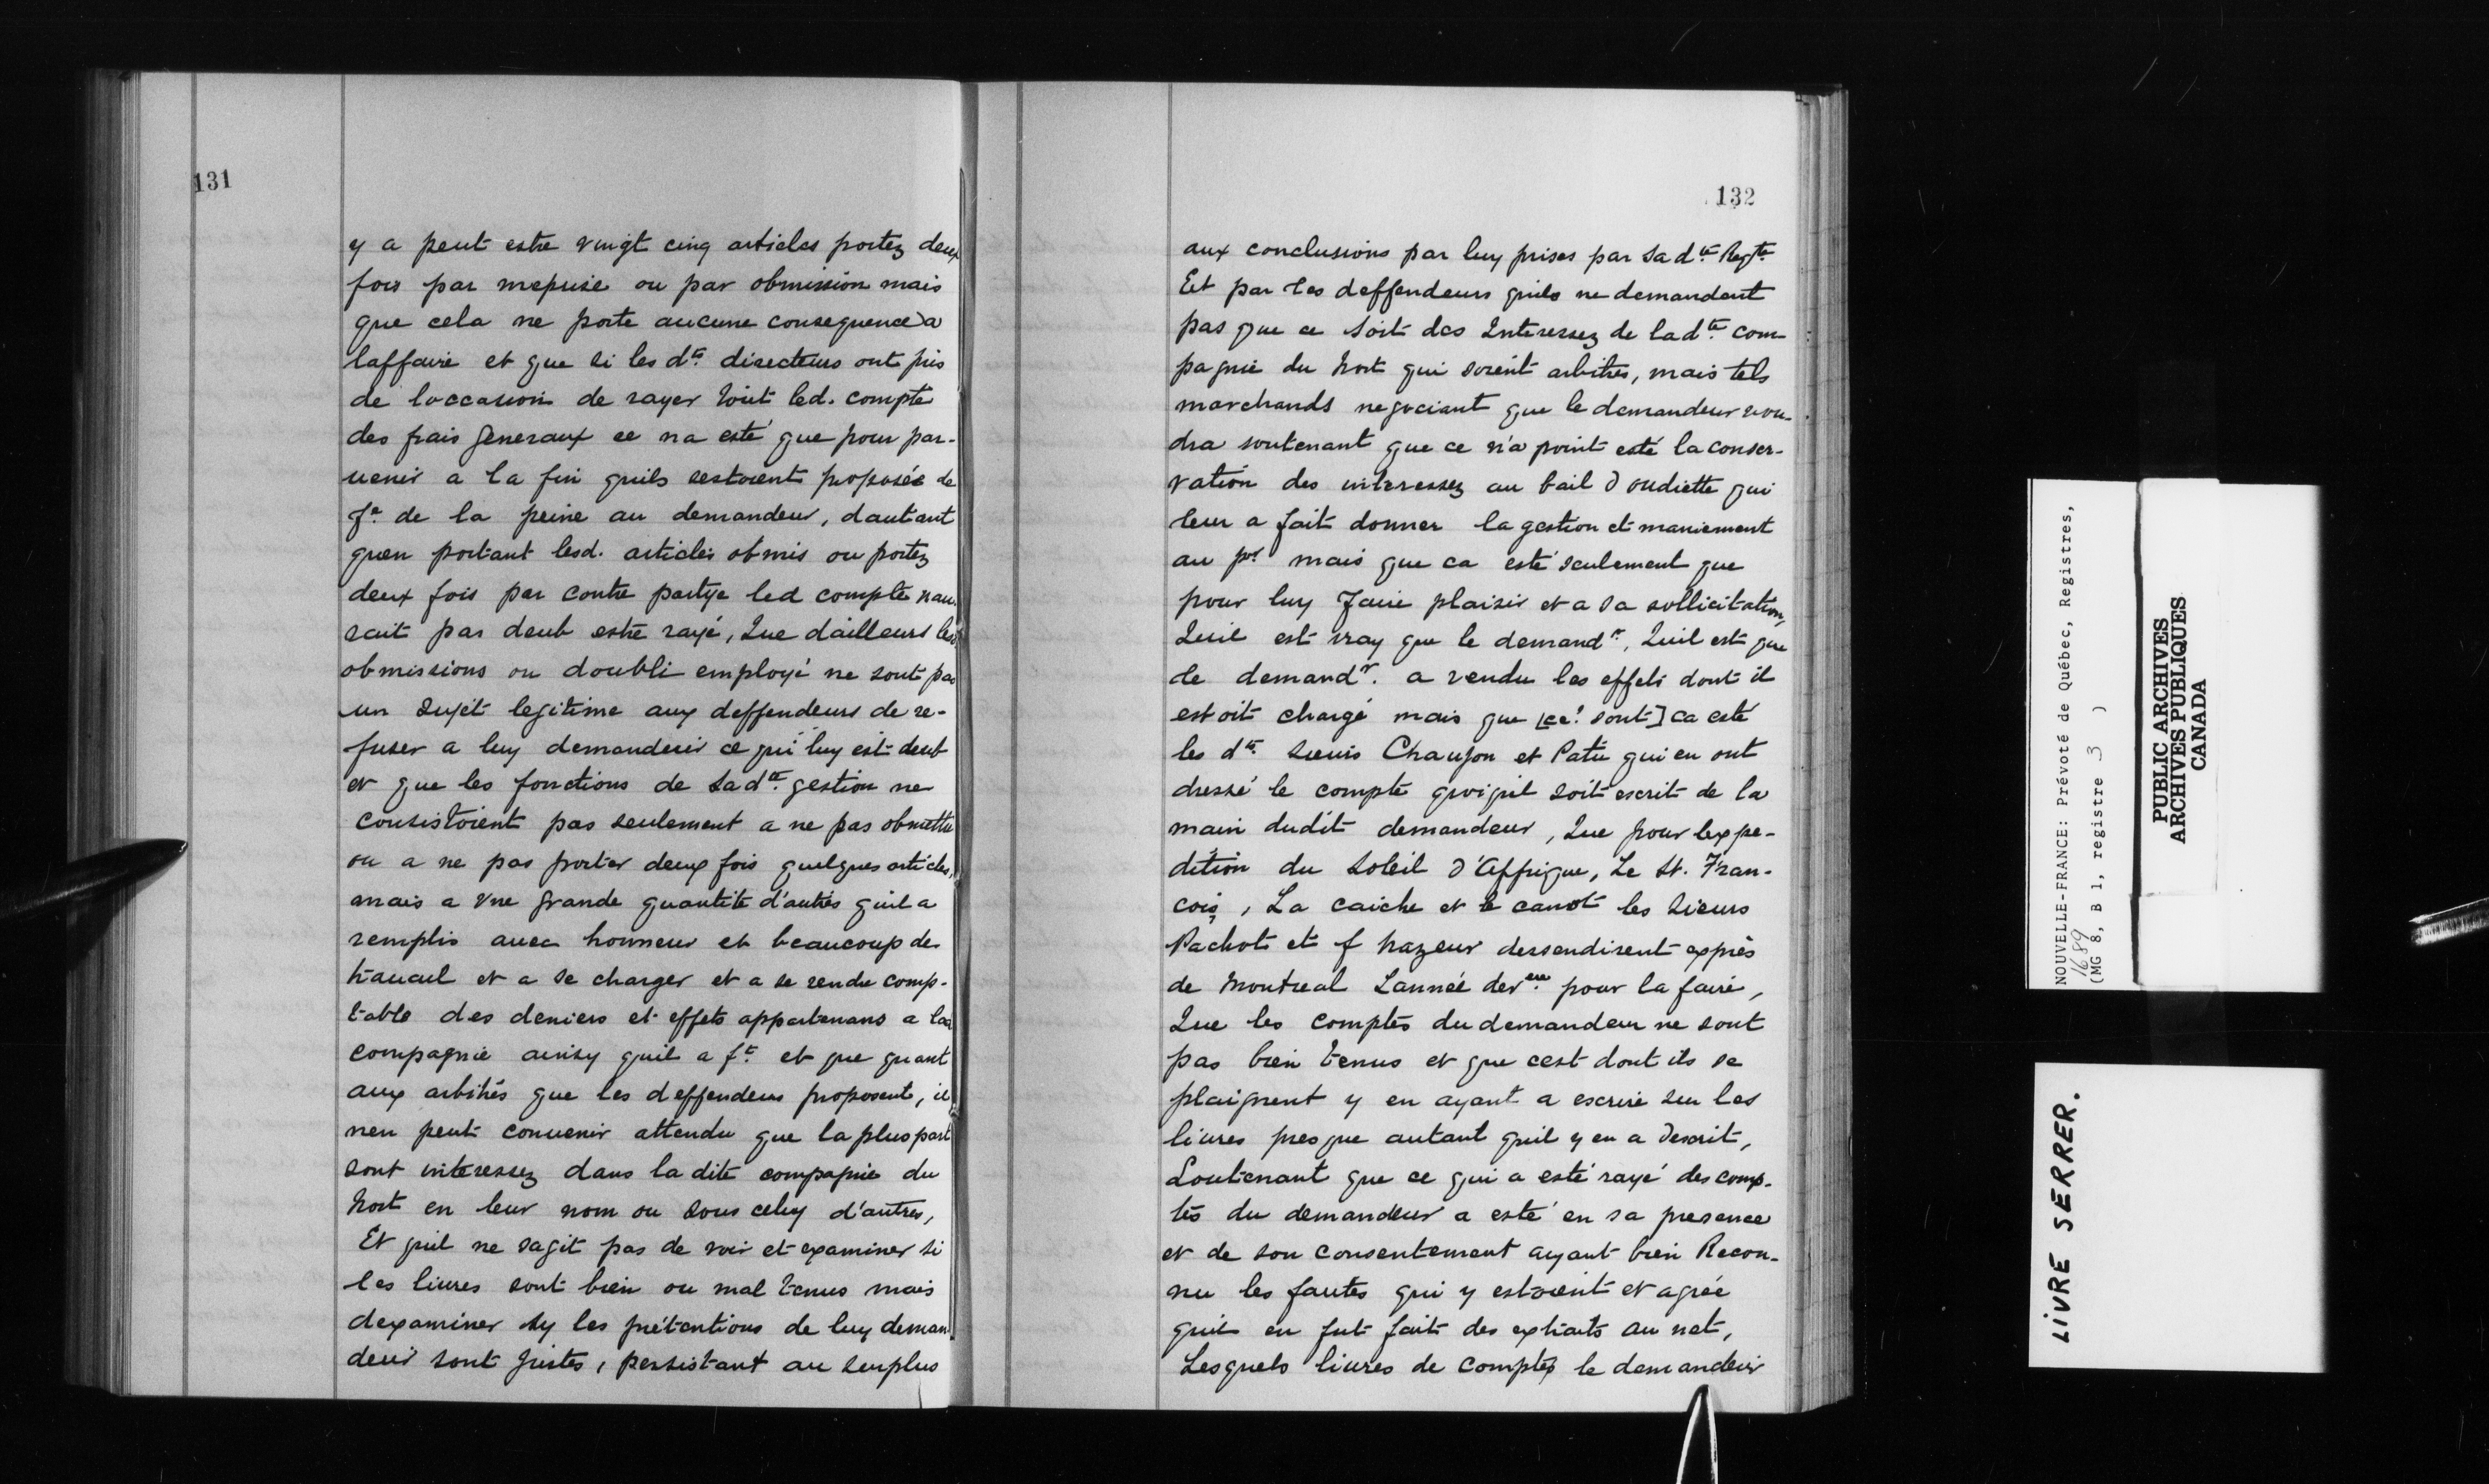 131
y a peut estre vingt cinq articles portez deux
fois par meprise ou par obmission mais
que cela ne porte aucune consequence a
laffaire et que si les dts. directeurs ont pris
de loccasion de rayer tout led. compte
des frais generaux ce na esté que pour par-
uenir a la fin quils sestoient proposée de
fe. de la peine au demandeur, dautant
quen portant lesd. articles obmis ou portez
deux fois par contre partye led compte nau
rait pas deub estre rayé, Que dailleurs les
obmissions ou doubli employé ne sont pas
un sujet legitime aux deffendeurs de re-
fuser a luy demandeur ce qui luy est deub
et que les fonctions de sa dte. gestion ne
consistoient pas seulement a ne pas obmettre
ou a ne pas porter deux fois quelques articles,
mais a vne grande quantité d'autres quil a
remplis auec honneur et beaucoup de
trauail et a se charger et a se rendre comp-
table des deniers et effets appartenans a lad
compagnie ainsy quil a ft. et que quant
aux arbitres que les deffendeurs proposent, il
nen peut conuenir attendu que la pluspart
sont interessez dans la dite compagnie du
Nort en leur nom ou sous celuy d'autres,
Et quil ne sagit pas de voir et examiner si
les liures sont bien ou mal tenus mais
dexaminer sy les prétentions de luy deman
deur sont justes, persistant au surplus
132
aux conclusions par luy prises par sa dte. Reqte
Et par les deffendeurs quils ne demandent
pas que ce soit des Interessez de lad te. com-
pagnie du Nort qui soient arbitres, mais tels
marchands negociant que le demandeur vou-
dra soutenant que ce n'a point esté la conser-
vation des interessez au bail d'oudiette qui
leur a fait donner la gestion et maniement
au pr mais que ca esté seulement que
pour luy faire plaisir et a sa sollicitation,
Quil est vray que le demandr. Quil est que
le demandr. a vendu les effets dont il
estoit chargé mais que [ce! sont] ca esté
les dts. sieurs Chaujon et Patu qui en ont
dressé le compte quoiquil soit escrit de la
main dudit demandeur, Que pour lexpe-
dition du Soleil d'Affrique, Le St. Fran-
cois, La caiche et le canot les Sieurs
Pachot et f hazeur dessendirent exprès
de Montreal Lannée derere. pour la faire,
Que les comptes du demandeur ne sont
pas bien tenus et que cest dont ils se
plaignent y en ayant a escrire sur les
liures presque autant quil y en a descrit,
Soutenant que ce qui a esté rayé des comp-
tes du demandeur a esté en sa presence
et de son consentement ayant bien Recon-
nu les fautes qui y estoient et agrée
quil en fut fait des extraits au net,
Lesquels liures de comptes le demandeur
NOUVELLE-FRANCE: Prévoté de Québec, Registres,
1689
(MG 8, B 1, registre 3 )
PUBLIC ARCHIVES
ARCHIVES PUBLIQUES
CANADA
LIVRE SERRER.